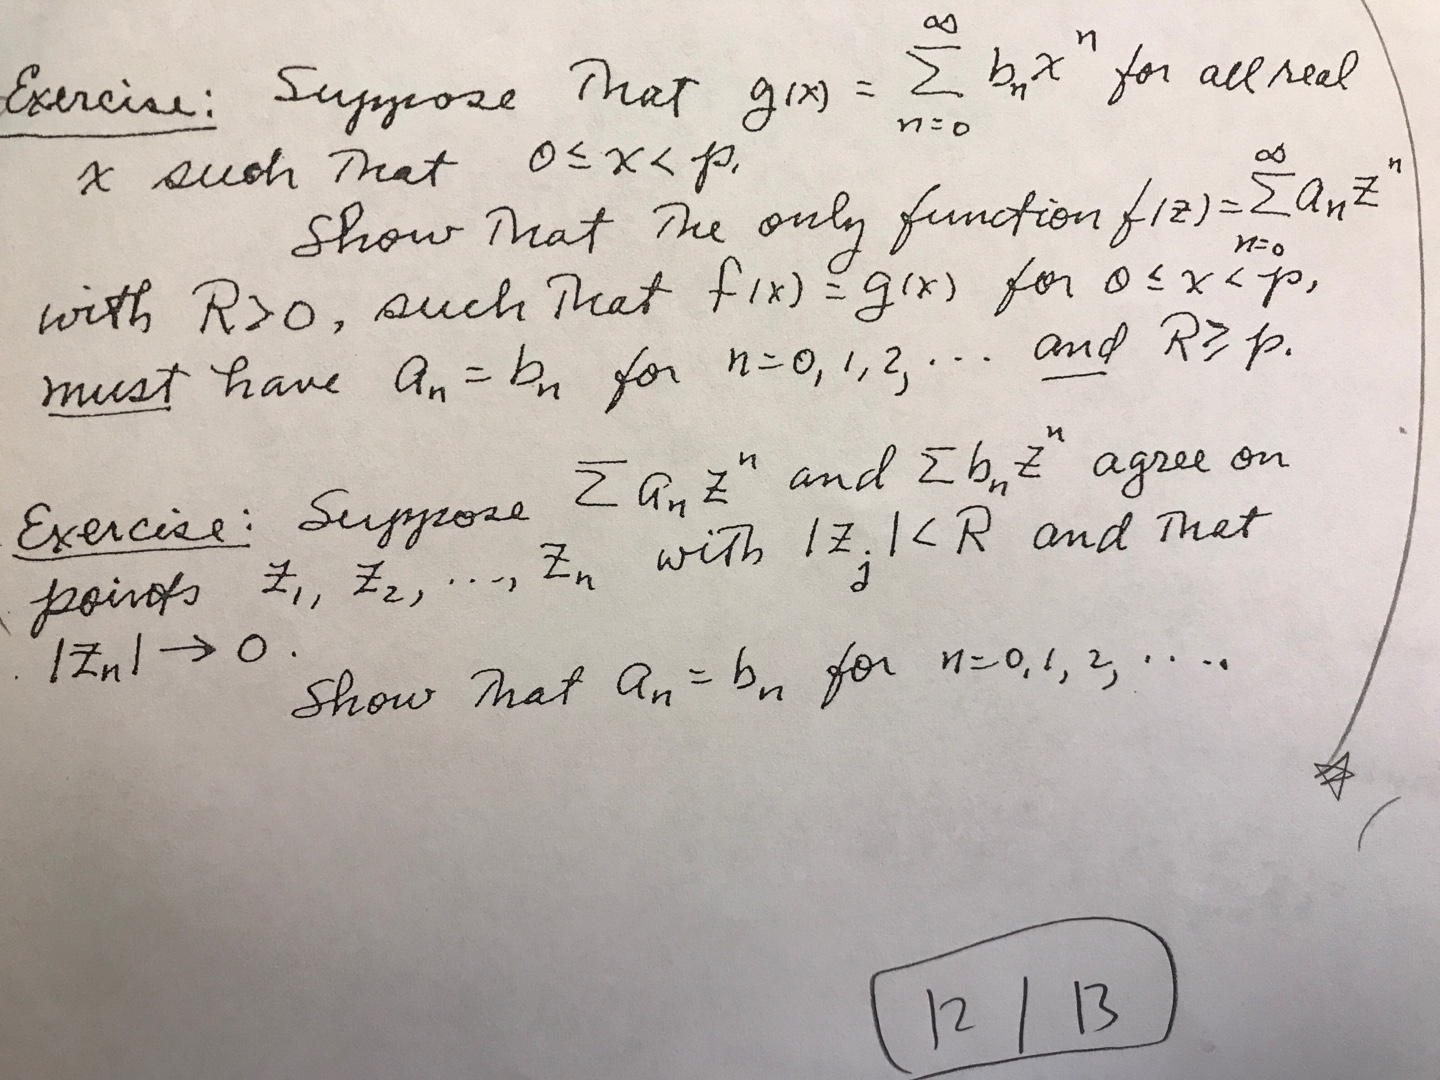 Exercise: Suppose that g(x) = ∞ Σ n=0 bₙxⁿ for all real
x such that 0 ≤ x < p.
Show that the only function f(z) = ∞ Σ n=0 aₙzⁿ
with R>0, such that f(x) = g(x) for 0 ≤ x < p,
must have aₙ = bₙ for n=0, 1, 2, ... and R ≥ p.
Exercise: Suppose Σ aₙzⁿ and Σ bₙzⁿ agree on
points z₁, z₂, ..., zₙ with |zⱼ| < R and that
|zₙ| → 0.
Show that aₙ = bₙ for n=0, 1, 2, ....
12 / 13